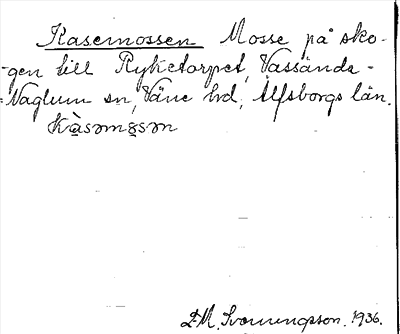 Kasemossen Mosse på sko-
gen till Ryketorpet, Vassända-
Naglum sn, Väne hd, Älfsborgs län.
Kàsəmɷsən
F.M. Svenningsson. 1936.